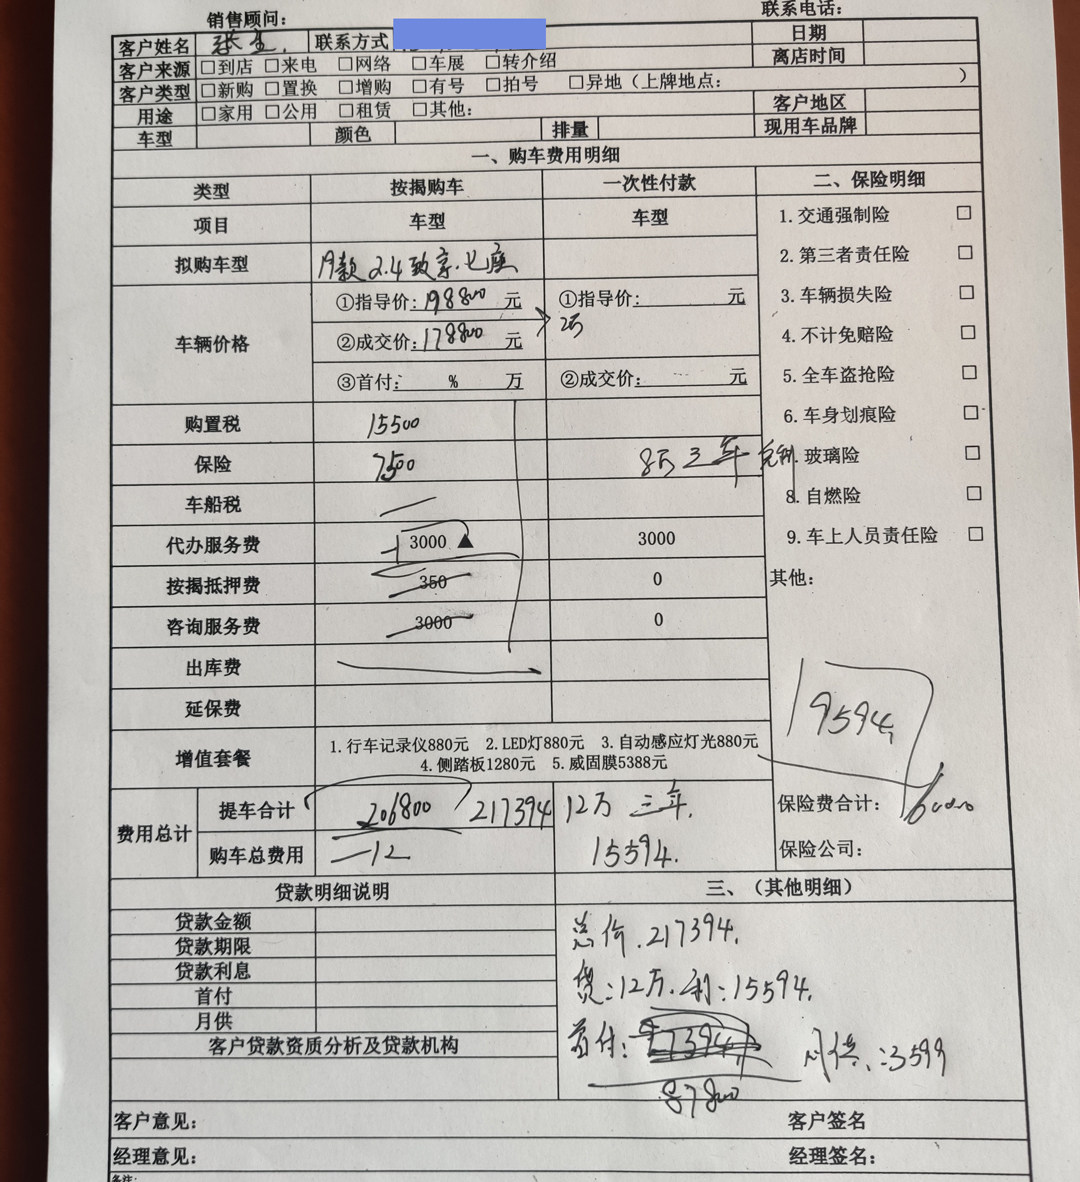 销售顾问： 联系电话：
客户姓名 张 联系方式 日期
客户来源 □到店 □来电 □网络 □车展 □转介绍 离店时间
客户类型 □新购 □置换 □增购 □有号 □拍号 □异地（上牌地点： ）
用途 □家用 □公用 □租赁 □其他： 客户地区
车型 颜色 排量 现用车品牌
一、购车费用明细
类型 按揭购车 一次性付款 二、保险明细
项目 车型 车型 1.交通强制险 □
拟购车型 19款 2.4 致享.七座 2.第三者责任险 □
车辆价格 ①指导价：198800 元 ①指导价： 元 3.车辆损失险 □
②成交价：178800 元 2万 4.不计免赔险 □
③首付： % 万 ②成交价： 元 5.全车盗抢险 □
购置税 15500 6.车身划痕险 □
保险 7500 8万 三年 免利 7.玻璃险 □
车船税 8.自燃险 □
代办服务费 3000▲ 3000 9.车上人员责任险 □
按揭抵押费 350 0 其他：
咨询服务费 3000 0
出库费
延保费 19594
增值套餐 1.行车记录仪880元 2.LED灯880元 3.自动感应灯光880元
4.侧踏板1280元 5.威固膜5388元
费用总计 提车合计 206800 217394 12万 三年. 保险费合计： 6000
购车总费用 —12 15594. 保险公司：
贷款明细说明 三、（其他明细）
贷款金额 总价.217394.
贷款期限
贷款利息 贷：12万.利：15594.
首付
月供 首付： 17394 月供：3599
客户贷款资质分析及贷款机构
87800
客户意见： 客户签名
经理意见： 经理签名：
备注：